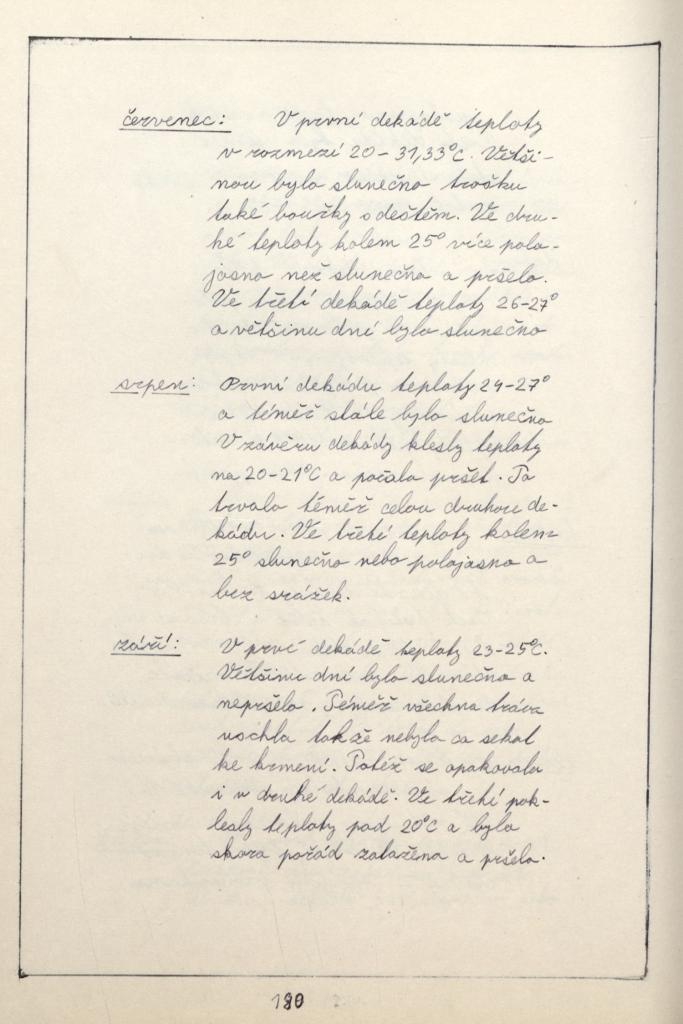 červenec: V první dekádě teploty
v rozmezí 20-31,33°C. Větši-
nou bylo slunečno trošku
také bouřky s deštěm. Ve dru-
hé teploty kolem 25° více polo-
jasno než slunečno a pršelo.
Ve třetí dekádě teploty 26-27°
a většinu dní bylo slunečno
srpen: První dekádu teploty 24-27°
a téměř stále bylo slunečno
V závěru dekády klesly teploty
na 20-21°C a počalo pršet. To
trvalo téměř celou druhou de-
kádu. Ve třetí teploty kolem
25° slunečno nebo polojasno a
bez srážek.
září: V prvé dekádě teploty 23-25°C.
Většinu dní bylo slunečno a
nepršelo. Téměř všechna tráva
uschla takže nebylo co sekat
ke krmení. Totéž se opakovalo
i v druhé dekádě. Ve třetí pok-
lesly teploty pod 20°C a bylo
skoro pořád zataženo a pršelo.
180